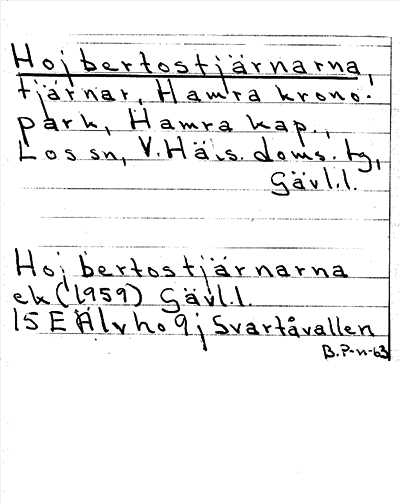 Hojbertostjärnarna,
tjärnar, Hamra krono-
park, Hamra kap.,
Los sn, V. Häls. doms. tg,
Gävl.l.
Hojbertostjärnarna
ek (1959) Gävl.l.
15 E Älvho 9j Svartåvallen
B.P-n-63